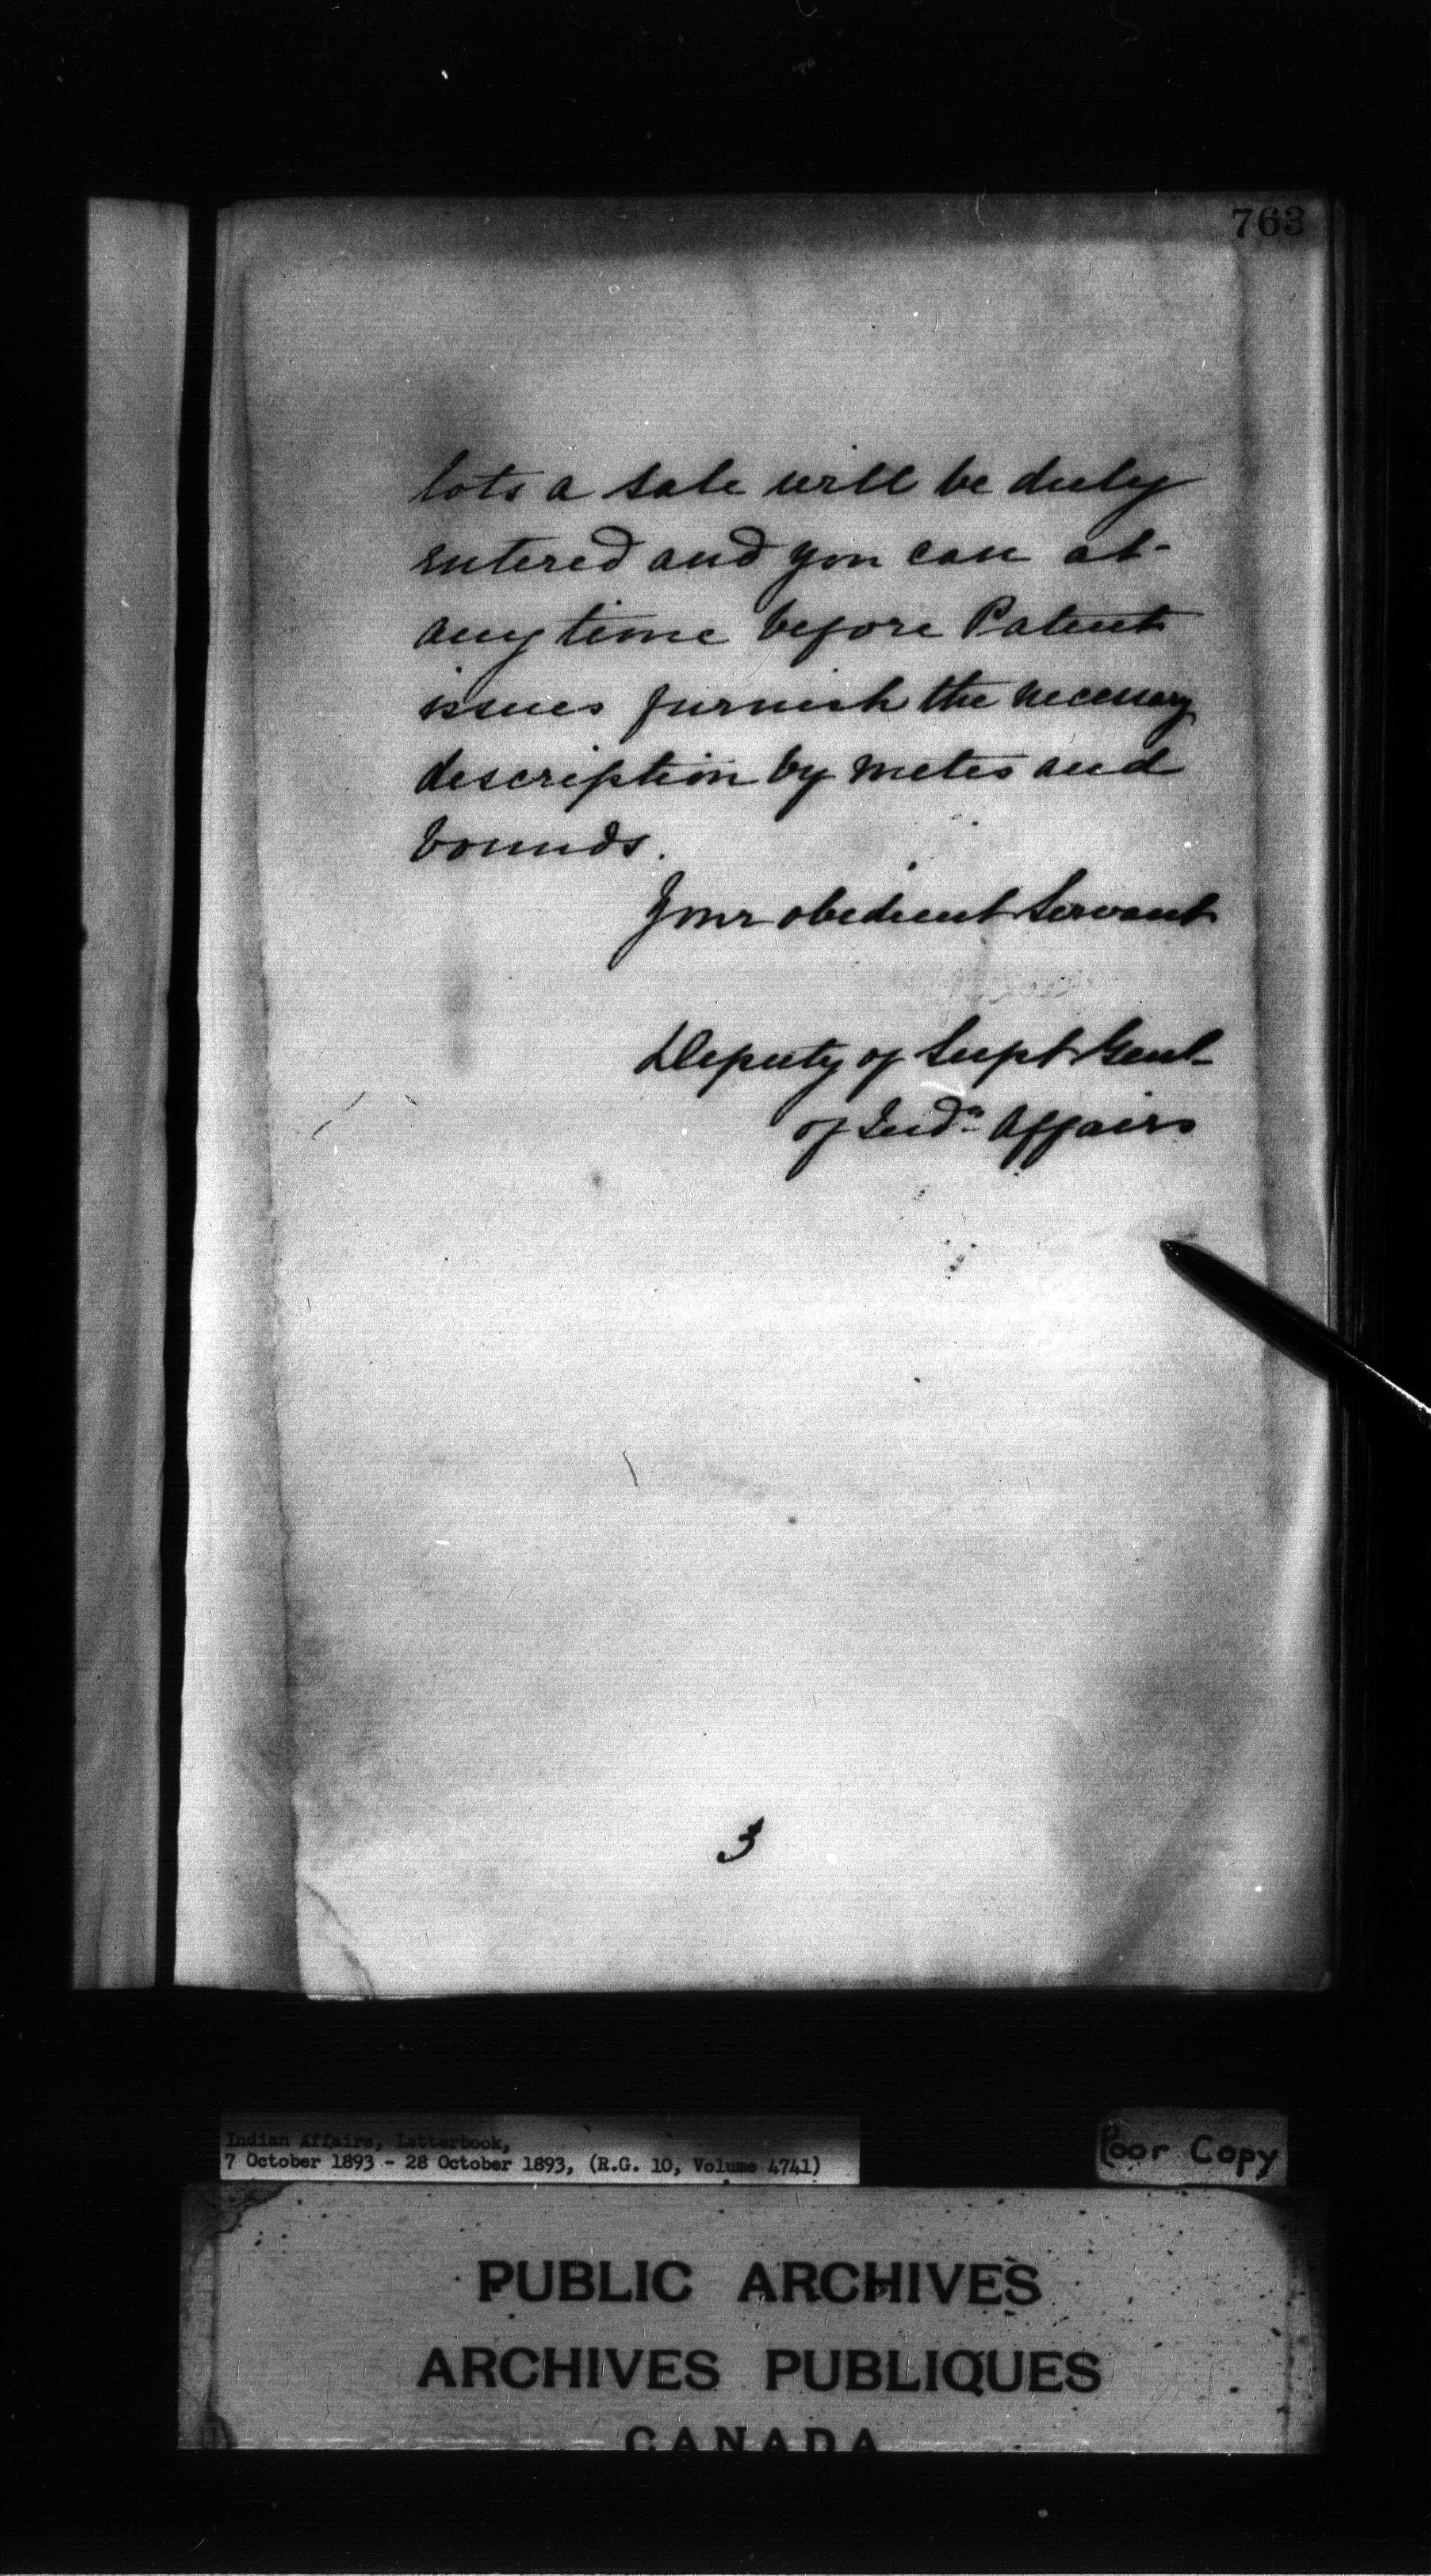 763
lots a sale will be duly
entered and you can at
any time before Patent
issues furnish the necessary
description by metes and
bounds.
Your obedient Servant
Deputy of Supt Genl
of Indn Affairs
3
Indian Affairs, Letterbook,
7 October 1893 - 28 October 1893, (R.G. 10, Volume 4741)
Poor Copy
PUBLIC ARCHIVES
ARCHIVES PUBLIQUES
CANADA